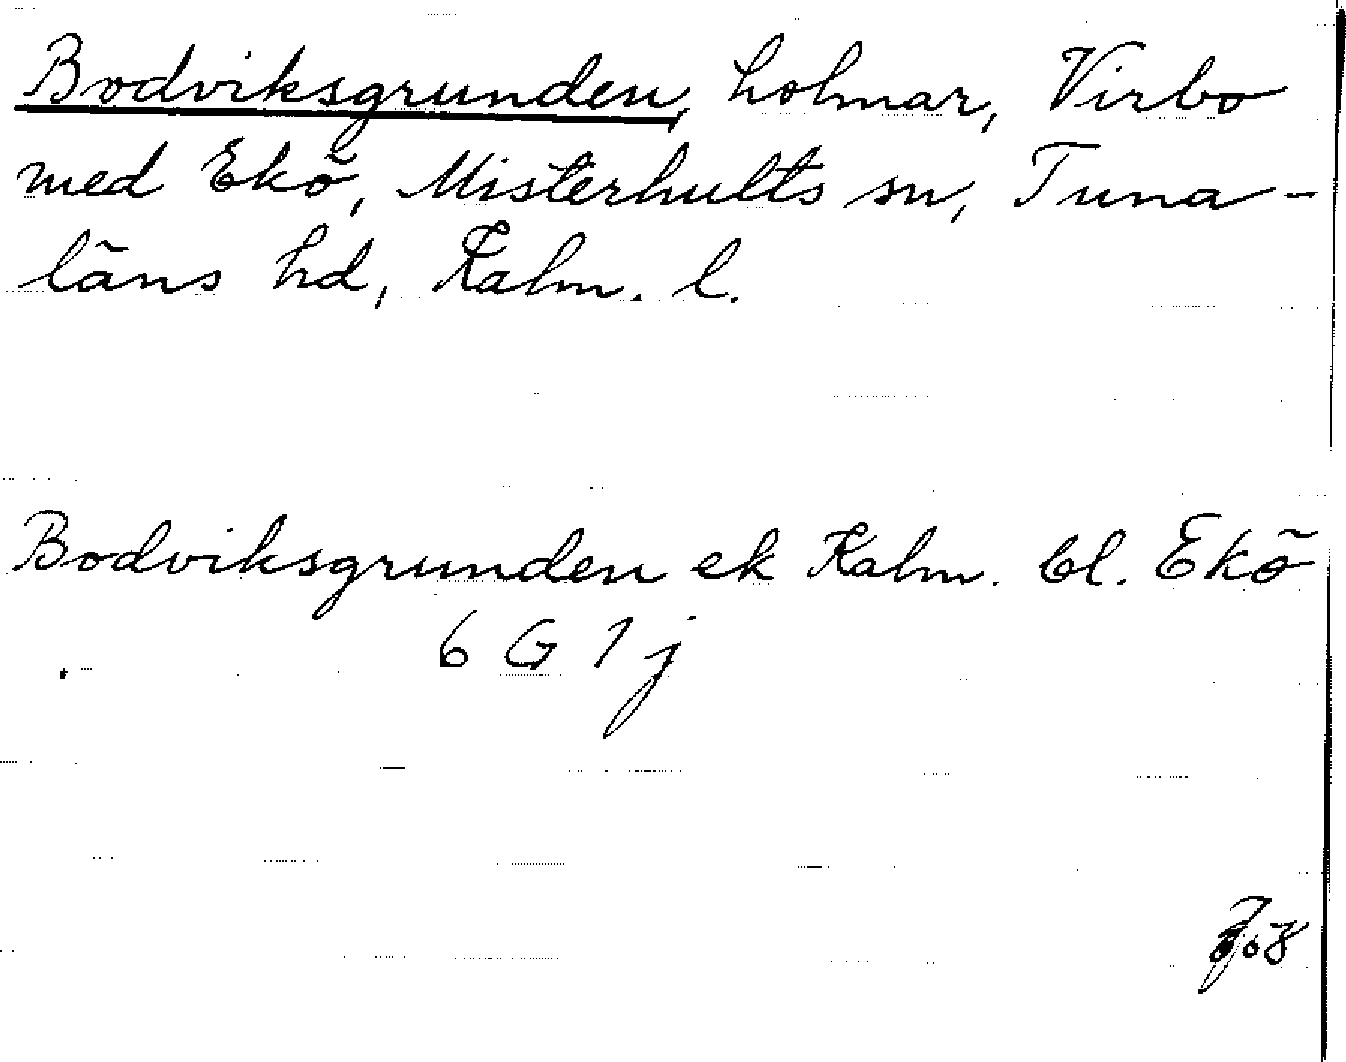 Bodviksgrunden, holmar, Virbo
med Ekö, Misterhults sn, Tuna-
läns hd, Kalm. l.
Bodviksgrunden ek Kalm. bl. Ekö
6 G 1 j